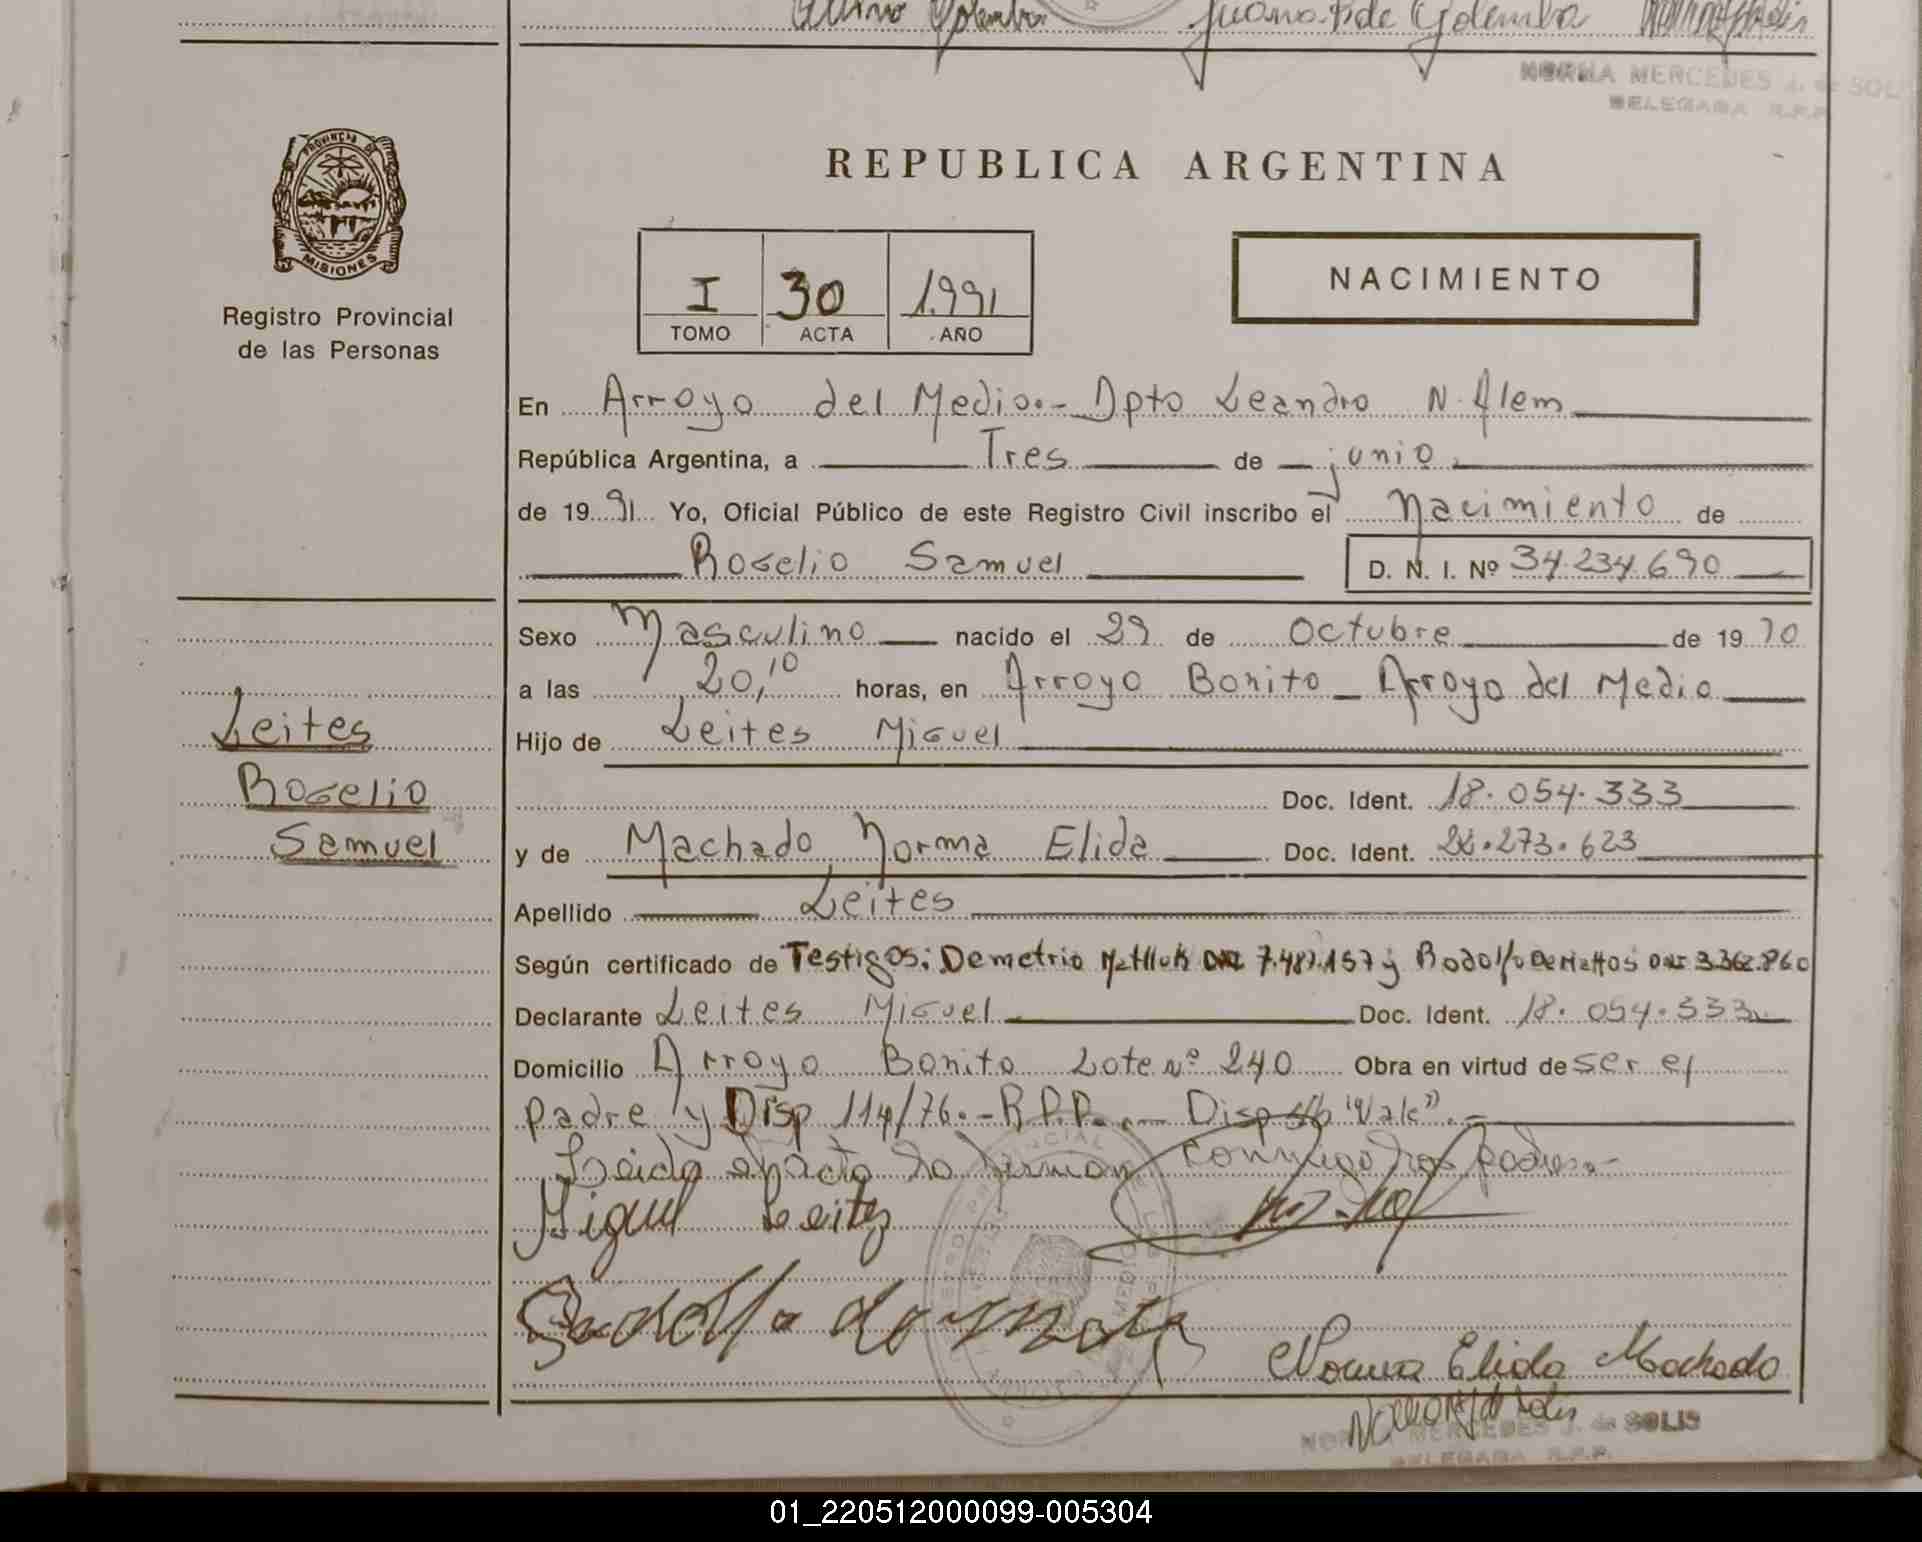 Juana F. de Golemba
NORMA MERCEDES J. de SOLIS
DELEGADA R.P.P.
PROVINCIA DE
MISIONES
Registro Provincial
de las Personas
REPUBLICA ARGENTINA
I 30 1.991
TOMO ACTA AÑO
NACIMIENTO
En Arroyo del Medio.- Dpto Leandro N. Alem
República Argentina, a Tres de junio
de 19 91 Yo, Oficial Público de este Registro Civil inscribo el Nacimiento de
Rogelio Samuel D. N. I. Nº 34.234.690
Sexo Masculino nacido el 29 de Octubre de 19
a las 20,10 horas, en Arroyo Bonito - Arroyo del Medio
Hijo de Leites Miguel
Doc. Ident. 18.054.333
y de Machado Norma Elida Doc. Ident. .273.623
Apellido Leites
Leites
Rogelio
Samuel
Según certificado de Testigos: Demetrio y Rodolfo De Mattos
Declarante Leites Miguel Doc. Ident. 18.054.333
Domicilio Arroyo Bonito Lote nº 240 Obra en virtud de ser el
padre y Disp 114/76.-R.P.P.- Disp s/b "Vale".-
Leida el acta la firman conmigo los padres.-
Miguel Leites
Rodolfo de Mato
Norma Elida Machado
NORMA MERCEDES J. de SOLIS
DELEGADA R.P.P.
01_220512000099-005304